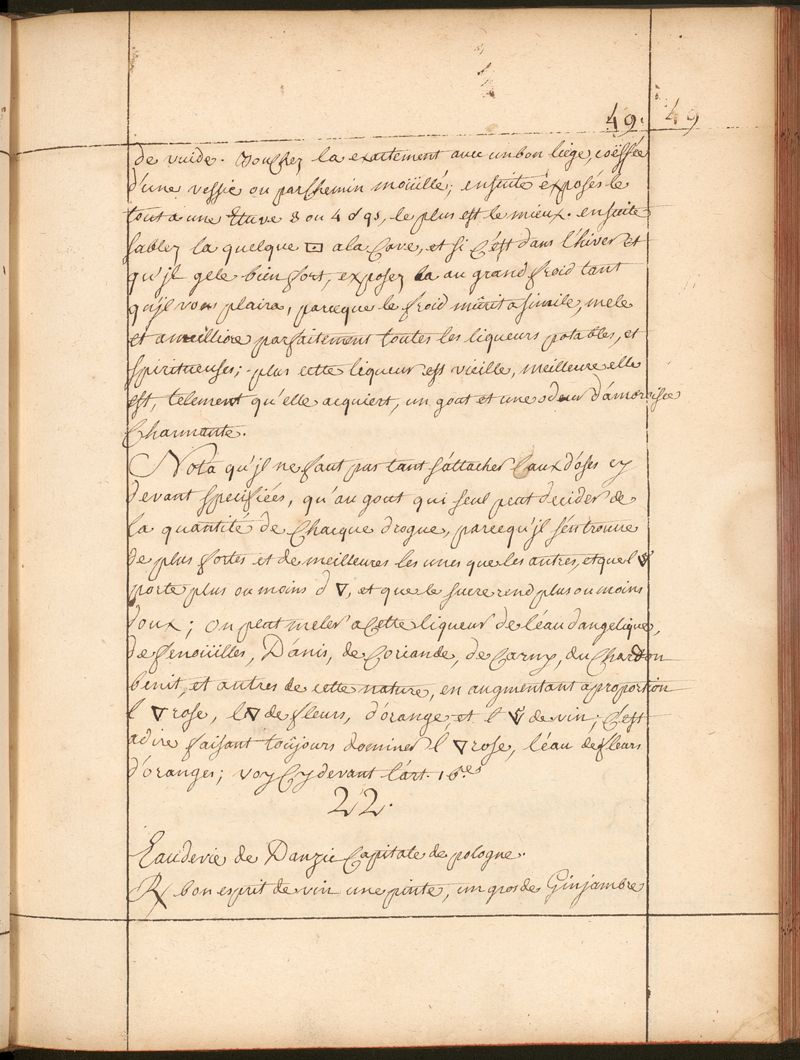 49. 49
de vuide. Bouchez la exactement avec un bon liège, coëffée
d'une vessie ou parchemin moüillé; ensuite exposés le
tout a une Etuve 3 ou 4 d qs, le plus est le mieux. ensuite
sablez la quelque ⊡ a la Cave, et si C'est dans l'hiver et
qu'jl gele bien fort, exposez la au grand froid tant
qu'jl vous plaira, parceque le froid meurit asimile, mele
et ameilliore parfaitement toutes les liqueurs potables, et
spiritueuses; plus cette liqueur est vieille, meilleure elle
est, telement qu'elle acquiert, un gout et une odeur d'amoroisie
Charmante.
Nota qu'jl ne faut pas tant s'attacher aux d'oses cy
devant specifiées, qu'au gout qui seul peut decider de
la quantité de Chacque drogue, parcequ'jl s'en trouve
de plus fortes et de meilleures les unes que les autres, et que l
porte plus ou moins d ▽, et que le sucre rend plus ou moins
doux; on peut meler a Cette liqueur de l'éau d'angelique,
de fenoüilles, D'anis, de Coriande, de Carny, du Chardon
benit, et autres de cette nature, en augmentant a proportion
l ▽ rose, l ▽ de fleurs, d'orange, et l de vin; C'est
adire faisant toûjours dominer l ▽ rose, l'éau de fleurs
d'oranges; voy Cy devant l'art. 16.es
22.
Eau de vie de Danzic Capitale de pologne.
℞ bon esprit de vin une pinte, un gros de Ginjambre